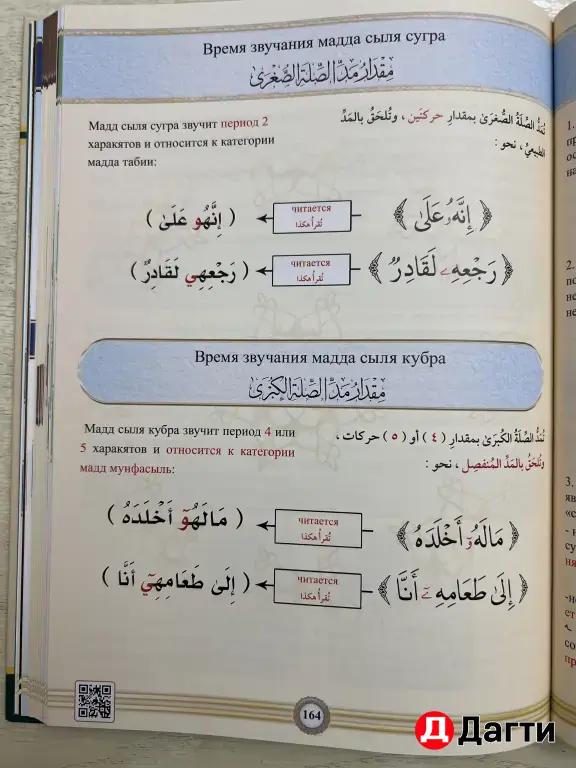 Время звучания мадда сыля сугра
مِقْدَارُ مَدِّ الصِّلَةِ الصُّغْرَىٰ
Мадд сыля сугра звучит период 2
харакятов и относится к категории
мадда табии:
تُمَدُّ الصِّلَةُ الصُّغْرَىٰ بمقدارِ حركتَين ، وتُلحَقُ بالمَدِّ
الطَّبيعيِّ ، نحو :
﴿ إِنَّهُۥ عَلَىٰ ﴾
читается
تُقرأُ هكذا
( إِنَّهُو عَلَىٰ )
﴿ رَجْعِهِۦ لَقَادِرٌ ﴾
читается
تُقرأُ هكذا
( رَجْعِهِي لَقَادِرٌ )
Время звучания мадда сыля кубра
مِقْدَارُ مَدِّ الصِّلَةِ الكُبْرَىٰ
Мадд сыля кубра звучит период 4 или
5 харакятов и относится к категории
мадд мунфасыль:
تُمَدُّ الصِّلَةُ الكُبرَىٰ بمقدارِ ( ٤ ) أو ( ٥ ) حركات ،
وتُلحَقُ بالمَدِّ المُنفصِل ، نحو :
﴿ مَالَهُۥٓ أَخْلَدَهُ ﴾
читается
تُقرأُ هكذا
( مَالَهُوٓ أَخْلَدَهُ )
﴿ إِلَىٰ طَعَامِهِۦٓ أَنَّا ﴾
читается
تُقرأُ هكذا
( إِلَىٰ طَعَامِهِيٓ أَنَّا )
164
Д Дагти